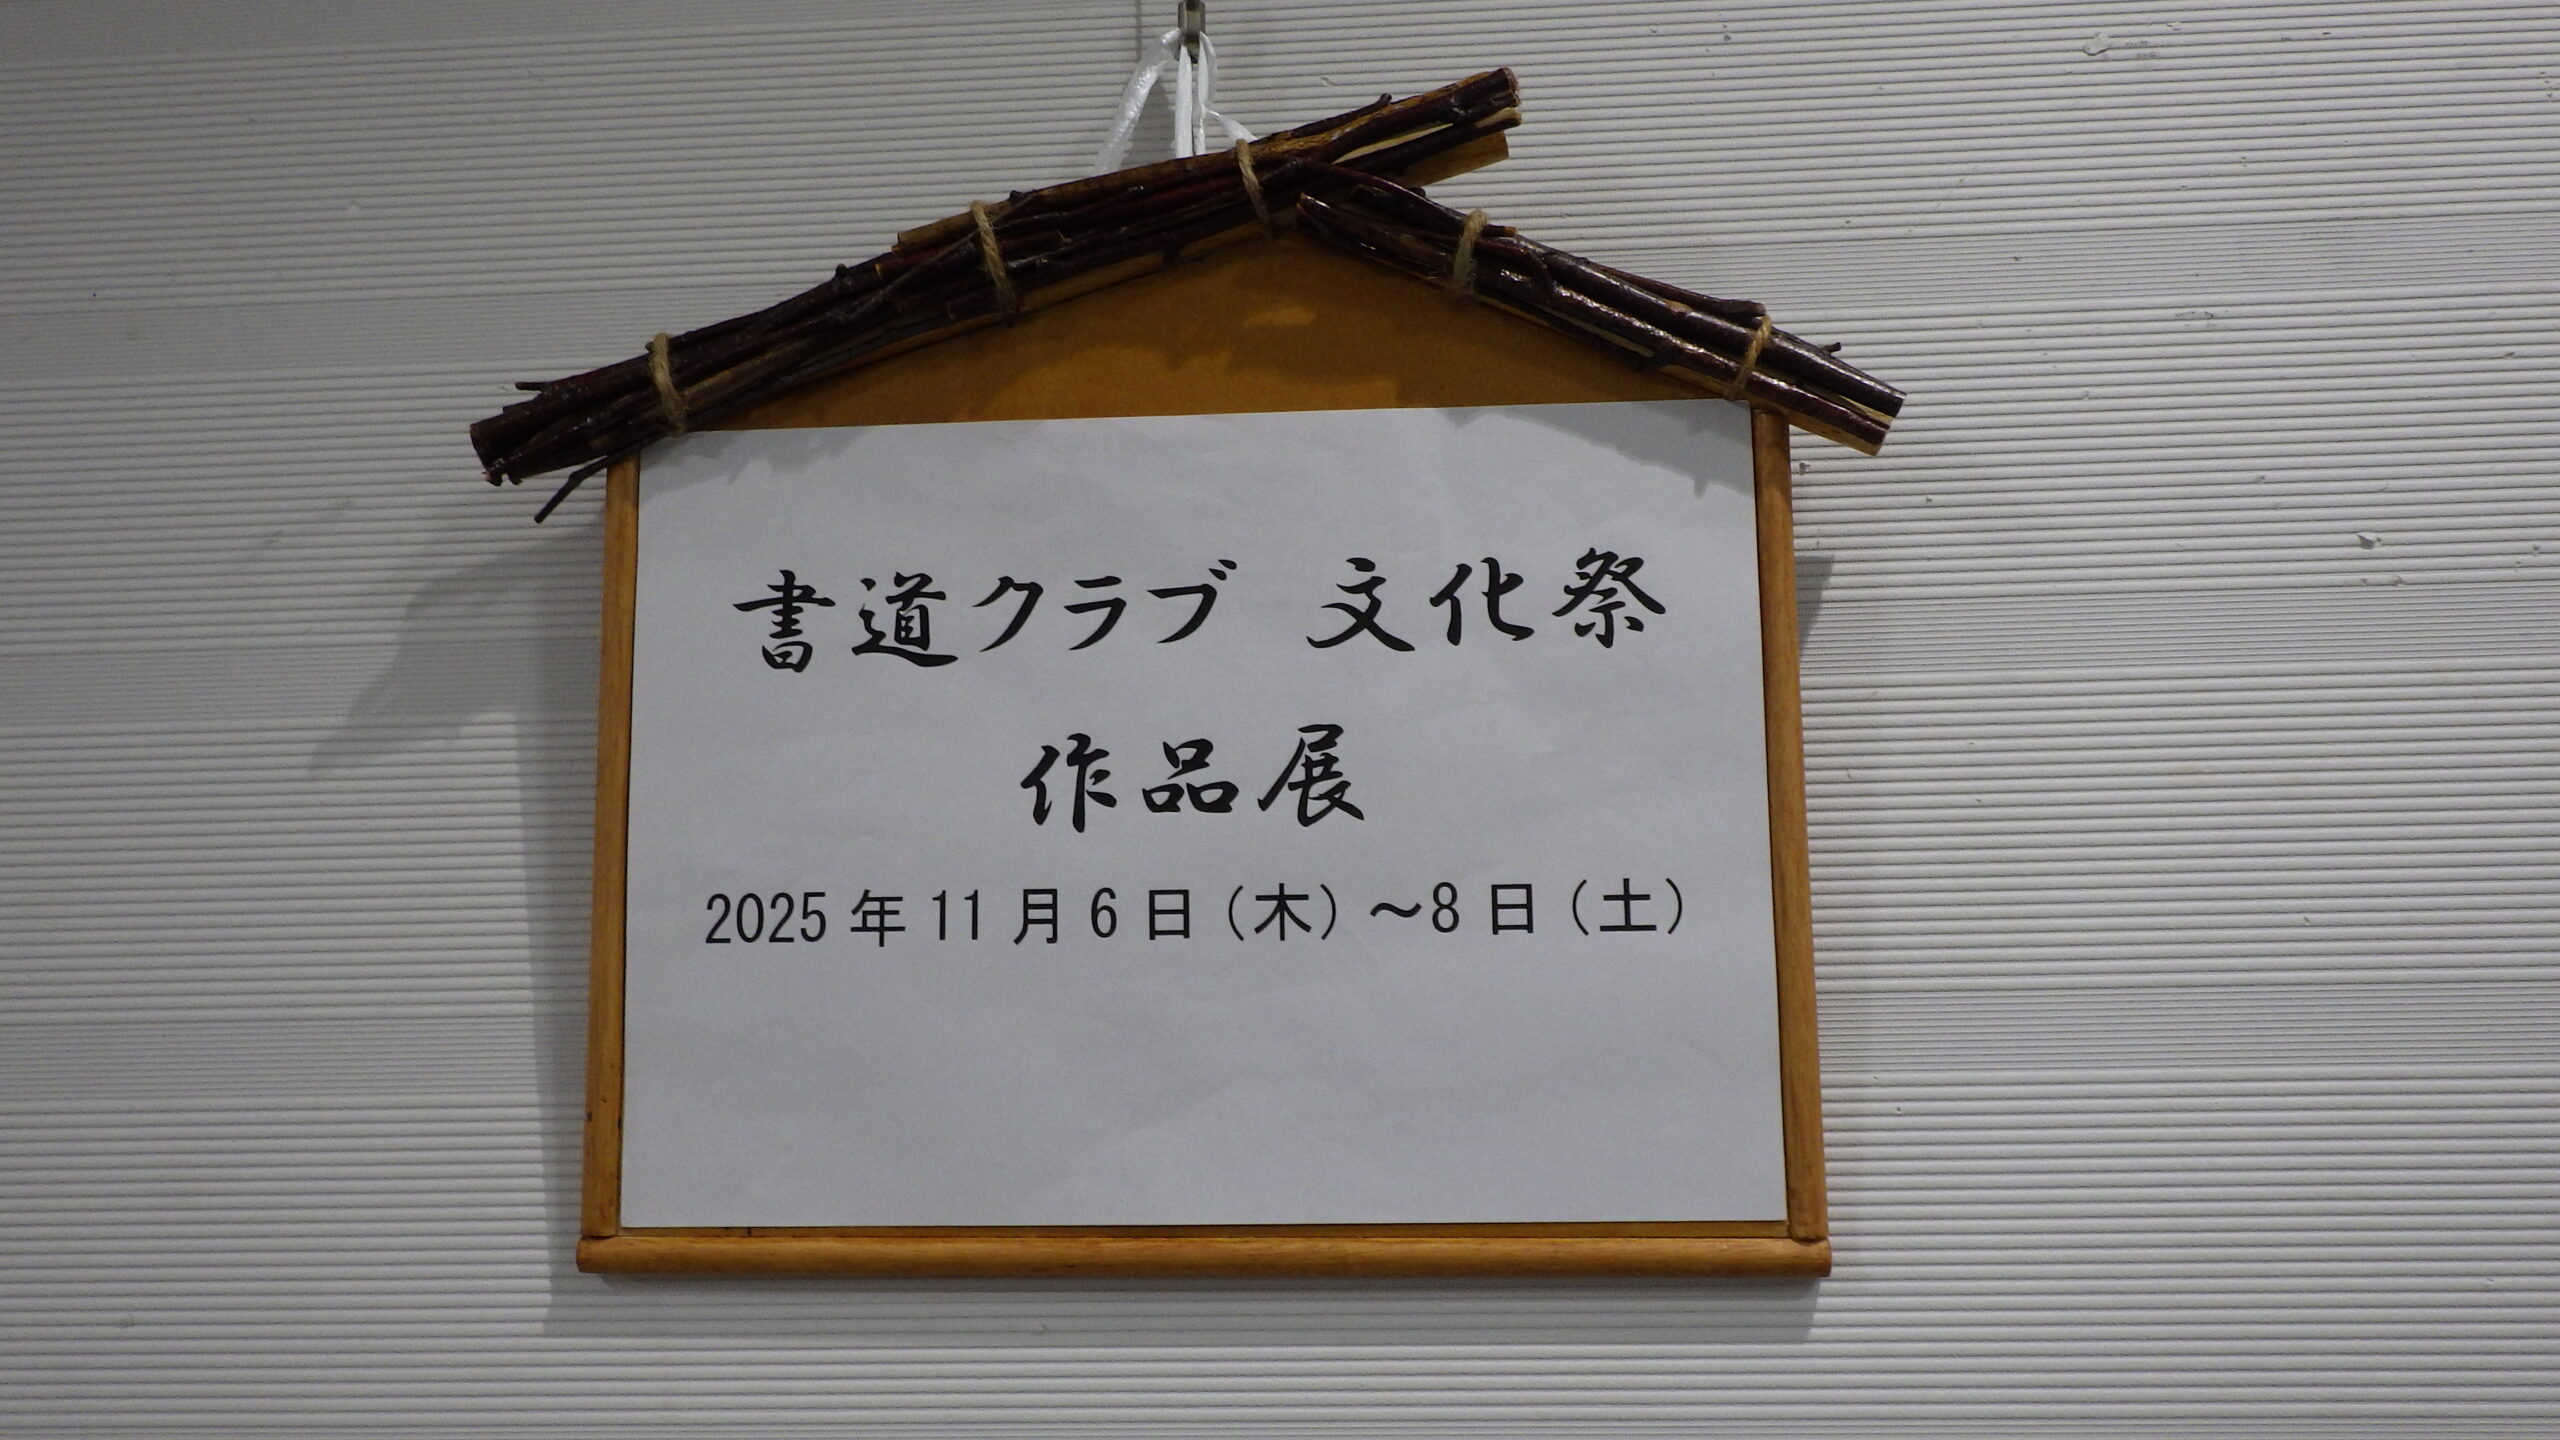 書道クラブ 文化祭
作品展
2025年11月6日（木）～8日（土）